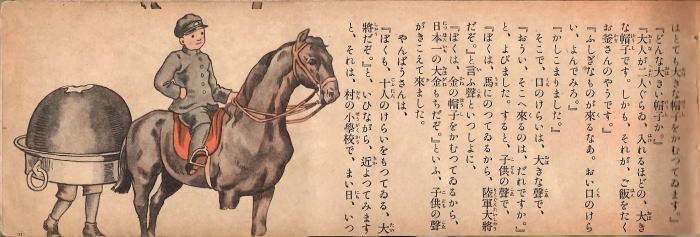 はとても大きな帽子をかむつてゐます。』
『どんな大きい帽子か。』
『大人が二人ぐらゐ、入れるほどの、大き
な帽子です。しかも、それが、ご飯をたく
お釜さんのやうです。』
『ふしぎなものが來るなあ。おい口のけら
い、よんでみろ。』
『かしこまりました。』
そこで、口のけらいは、大きな聲で、
『おうい、そこへ來るのは、だれですか。』
と、よびました。すると、子供の聲で、
『ぼくは、馬にのつてゐるから、陸軍大將
だぞ。』と言ふ聲といつしよに、
『ぼくは、金の帽子をかむつてゐるから、
日本一の大金もちだぞ。』といふ、子供の聲
がきこえて來ました。
やんぼうさんは、
『ぼくも、十人のけらいをもつてゐる、大
將だぞ。』と、いひながら、近よつてみます
と、それは、村の小學校で、まい日、いつ